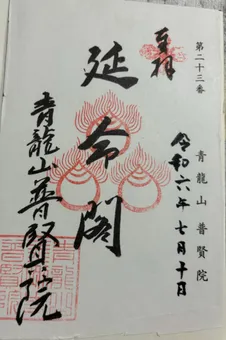 第二十三番 青龍山 普賢院
奉拝
令和六年七月十日
延命閣
青龍山普賢院
青龍山
普賢院